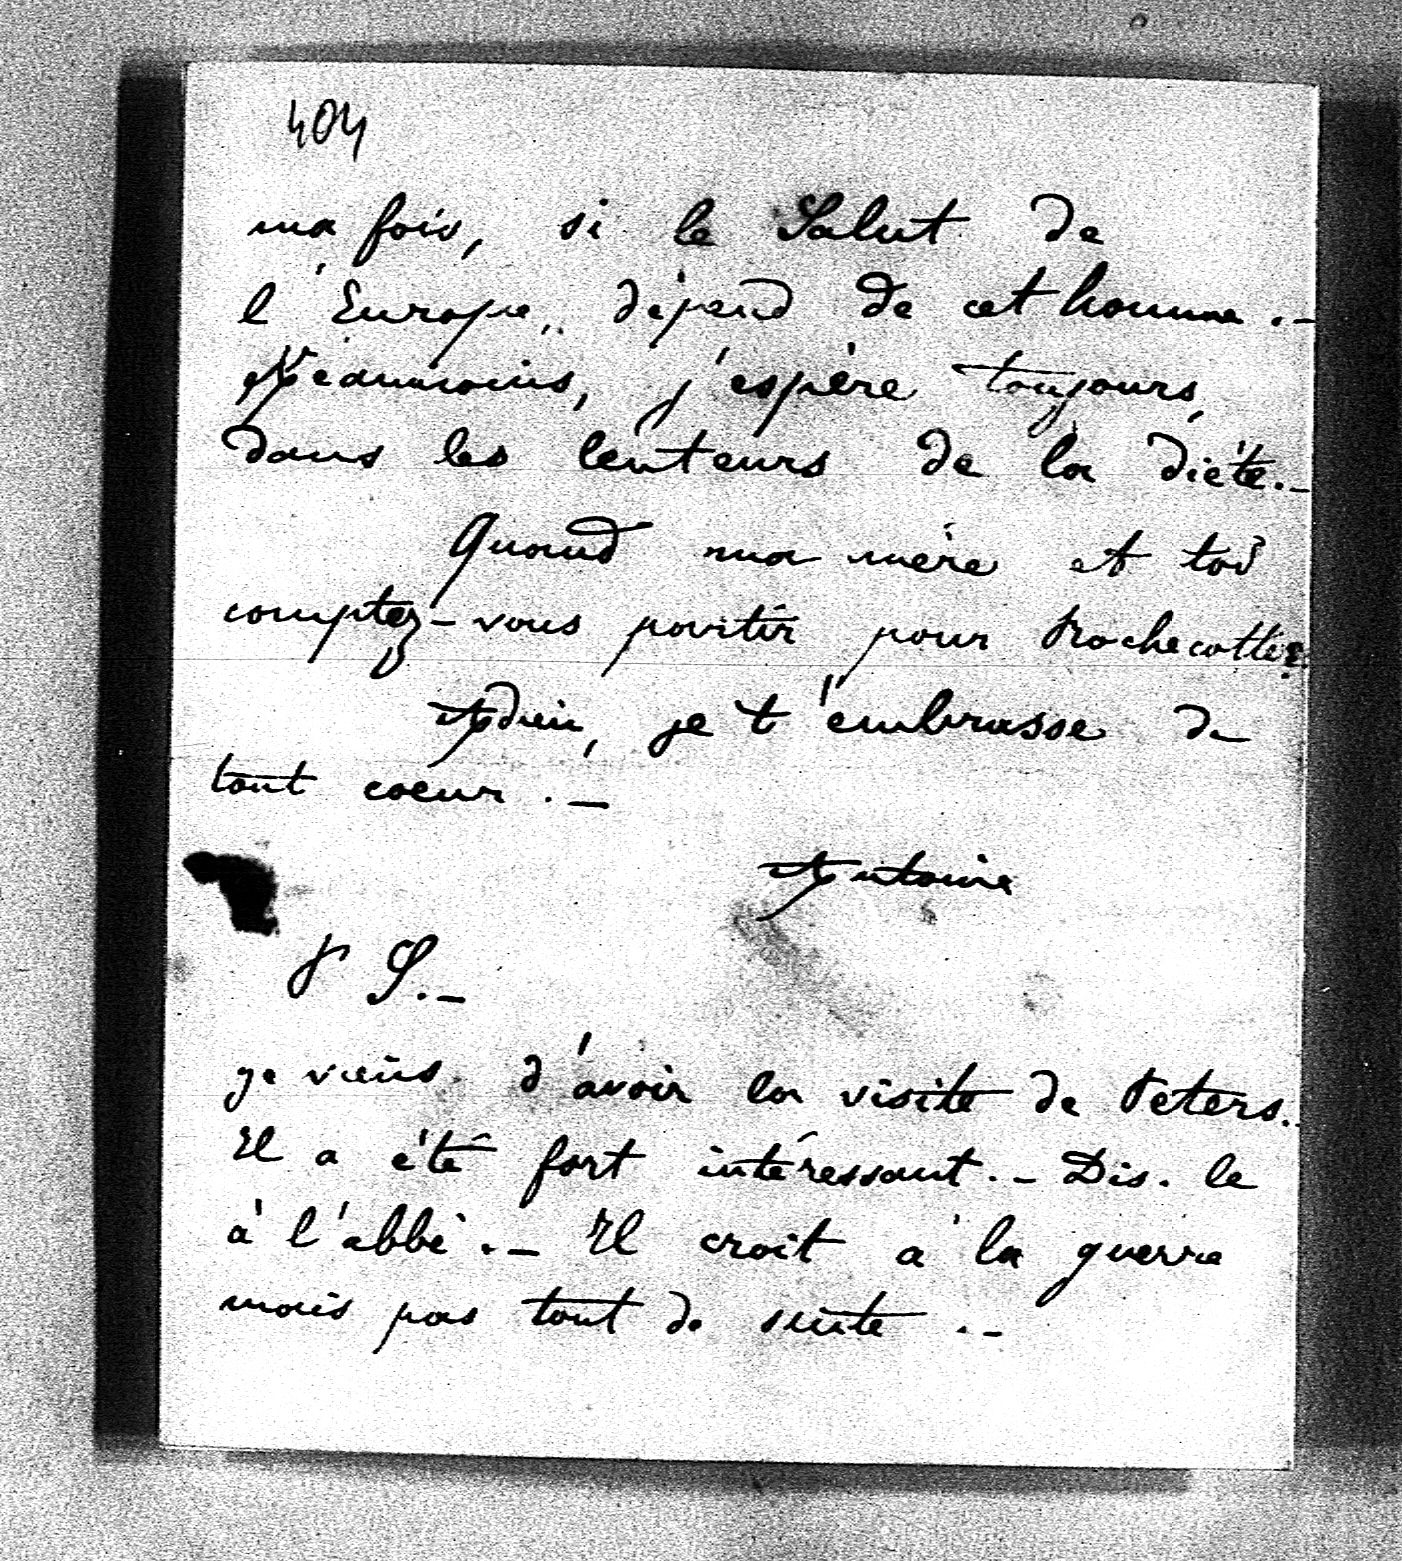 404
ma foi, si le Salut de
l'Europe, dépend de cet homme. -
Néanmoins, j'espère toujours,
dans les lenteurs de la diète. -
Quand ma mère et toi
comptez-vous partir pour Rochecotte?
Adieu, je t'embrasse de
tout coeur. -
Antoine
P S. -
je viens d'avoir la visite de Peters.
Il a été fort intéressant. - Dis. le
à l'abbé. - Il croit à la guerre
mais pas tout de suite. -